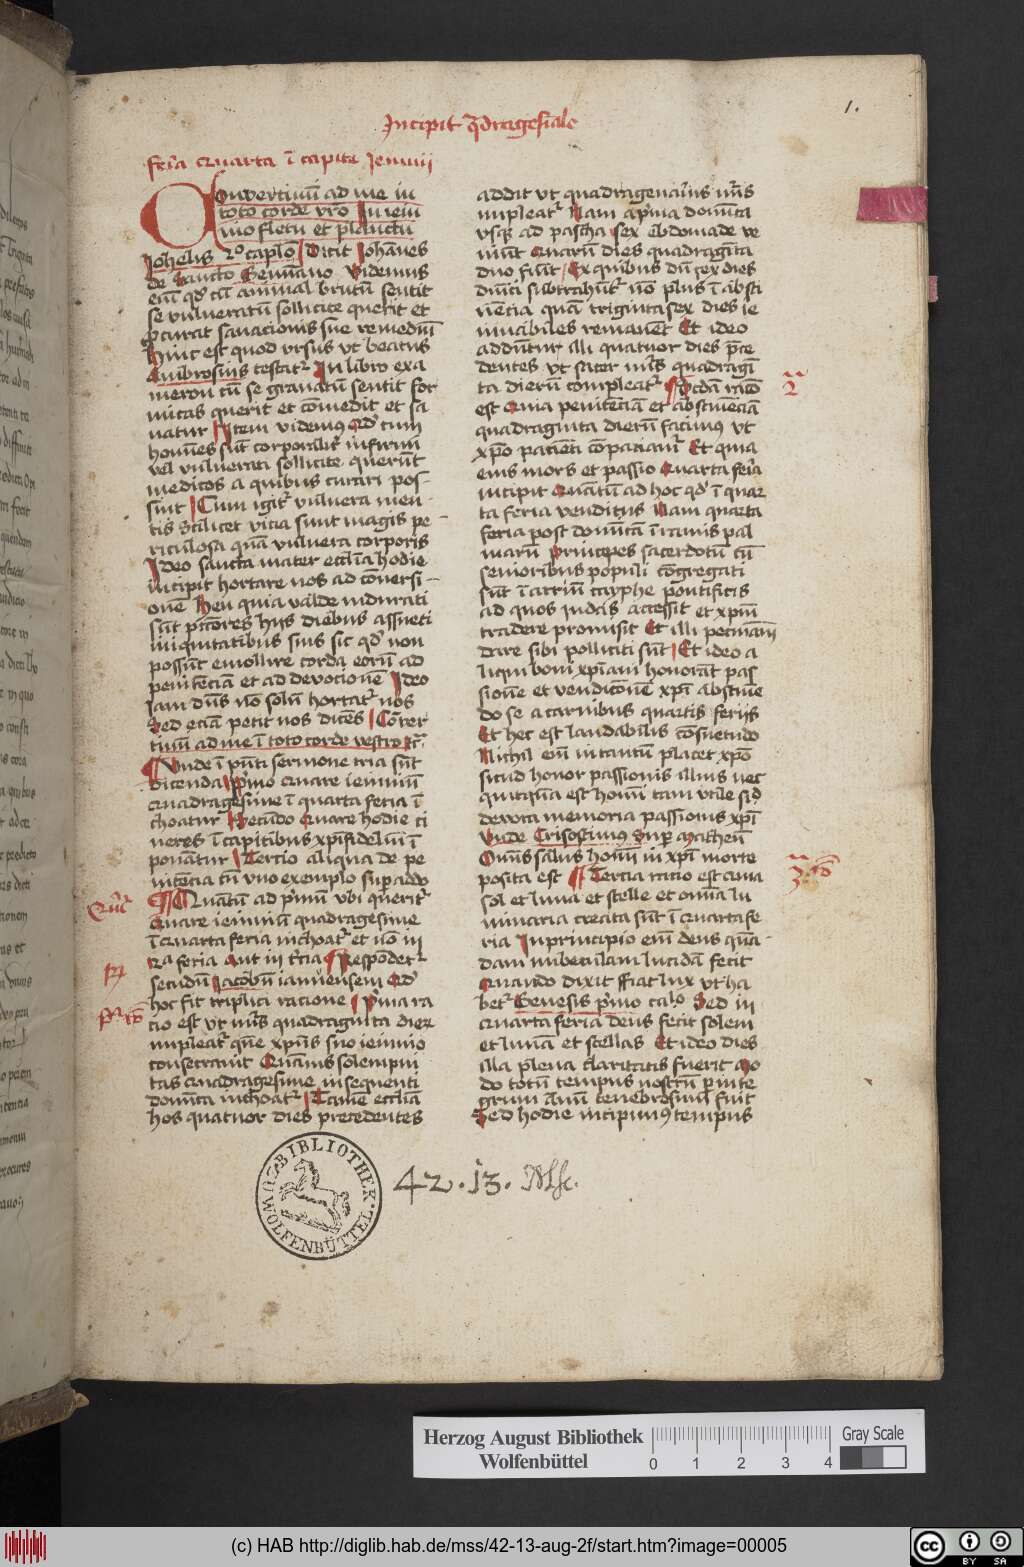 1.
Incipit q̄dragesiale
feria quarta ī capite Ieiunij
Conuertimī ad me in
toto corde vr̄o In ieiu
nio fletu et planctu
Iohelis 2o caplō Dicit Iohānes
de Sancto Geminiano Videmus
eīm qd' cū animal brutū sentit
se vulneratū sollicite querit et
procurat sanationis sue remediū
Hinc est quod vrsus vt beatus
Ambrosius testatr In libro exa
meron cū se grauatū sentit for
micas querit et cōmedit et sa
natur Item videmus qd' cum
homīes sūt corporalitr infirmi
vel vulnerati sollicite querūt
medicos a quibus curari pos-
sint Cum igitr vulnera men-
tis scilicet vicia sunt magis pe-
riculosa quā vulnera corporis
Ideo sancta mater ecclīa hodie
incipit hortare nos ad cōuersi-
onē Heu quia valde indurati
sūt pctōres hijs diebus assueti
iniquitatibus suis sic qd' non
possūt emollire corda eorū ad
penitēciā et ad deuocionē Ideo
iam dn̄s nō solū hortatr nos
Sed eciā petit nos dicēs Cōuer
timī ad me ī toto corde vestro etc
Vnde ī pn̄ti sermone tria sūt
dicenda Primo quare ieiuniū
quadragesime ī quarta feria ī
choatur Secūdo Quare hodie ci
neres ī capitibus xpīfideliū ī
ponātur Tercio aliqua de pe
nitēcia cū vno exemplo super addo
Quātū ad prīmū vbi queritr
Quare ieiuniū quadragesime
ī quarta feria inchoatr et nō in
2a feria Aut in tercia Respōdetr
secūdū Iacobū ianuensem Qd'
hoc fit triplici racione Prima ra
cio est vt nr̄is quadraginta dier
impleatr quē xpūs suo ieiunio
consecrauit Quāuis solempni
tas quadragesime insequenti
domīca inchoatr Tamē ecclīa
hos quatuor dies precedentes
addit vt quadragenarius nr̄us
impleatr Nam a prīma domīca
vsque ad pascha sex ebdomade ve
niūt Quarū dies quadragīta
duo fiūt Ex quibus dū sex dies
dn̄ici subtrahūtr nō plus ī absti
nēcia quā trigintasex dies ie
iunabiles remanēt Et ideo
addūntur illi quatuor dies prece
dentes vt sacer nr̄us quadragī
ta dierū compleatr Secūda racō
est Quia penitēciā et abstinēciā
quadraginta dierū facimus vt
xpō patiēti cōpaciamr Et quia
eius mors et passio Quarta feria
incipit Quātū ad hoc qd' ī quar
ta feria venditus Nam quarta
feria post domīcā ī ramis pal
marū Principes sacerdotū cū
senioribus populi cōgregati
sūt ī atriū cayphe pontificis
ad quos iudas accessit et xpm̄
tradere promisit Et illi pecuniam
dare sibi polliciti sūt Et ideo a
liqui boni xpīani honorāt pas
sionē et vendicōnē xpī abstinē
do se a carnibus quartis ferijs
Et hec est laudabilis cōsuetudo
Nichil eīm intantū placet xpō
sicud honor passionis illius nec
quicquā est homī tam vtile sicud
deuota memoria passionis xpī
Vnde Crisostimus super Matheū
Omīs salus homī in xpī morte
posita est Tercia racio est quia
sol et luna et stelle et omīa lu
minaria creata sūt ī quarta fe
ria Inprincipio eīm deus quā-
dam nubeculam lucidā fecit
Quando dixit ffiat lux vt ha
betr Genesis prīmo calo Sed in
quarta feria deus fecit solem
et lunā et stellas Et ideo dies
illa plena claritatis fuerit Mo
do totū tempus nostrū per inte
grum annū tenebrosum fuit
Sed hodie incipimus tempus
BIBLIOTHEK
WOLFENBÜTTEL
42.13. Msc.
Herzog August Bibliothek
Wolfenbüttel
0 1 2 3 4
Gray Scale
(c) HAB http://diglib.hab.de/mss/42-13-aug-2f/start.htm?image=00005
cc BY SA